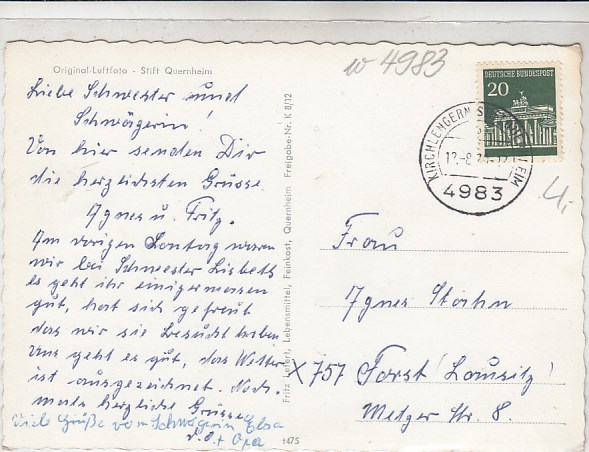 Original-Luftfoto - Stift Quernheim
w 4983
Liebe Schwester und
Schwägerin!
Von hier senden Dir
die herzlichsten Grüsse.
Agnes u. Fritz.
Am vorigen Sonntag waren
wir bei Schwester Lisbeth
es geht ihr einigermassen
gut, hat sich gefreut
das wir sie besucht haben
Uns geht es gut, das Wetter
ist ausgezeichnet. Noch-
mals herzliche Grüsse
d. O.
Viele Grüße vom Schwägerin Elsa
+ Opa
Fritz Lefert, Lebensmittel, Feinkost, Quernheim Freigabe-Nr. K 8/12
1475
DEUTSCHE BUNDESPOST
20
KIRCHLENGERN
4983
4,-
Frau
Agnes
X 757 Forst (Lausitz)
Metzer Str. 8.